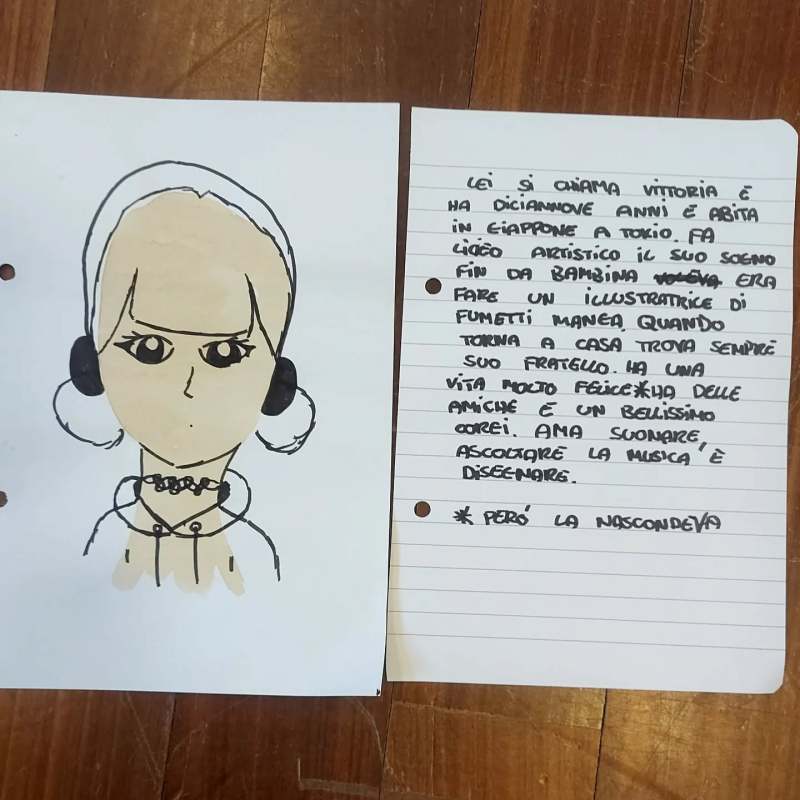 LEI SI CHIAMA VITTORIA E
HA DICIANNOVE ANNI E ABITA
IN GIAPPONE A TOKIO. FA
LICEO ARTISTICO IL SUO SOGNO
FIN DA BAMBINA VOLEVA ERA
FARE UN ILLUSTRATRICE DI
FUMETTI MANGA. QUANDO
TORNA A CASA TROVA SEMPRE
SUO FRATELLO. HA UNA
VITA MOLTO FELICE*HA DELLE
AMICHE E UN BELLISSIMO
COREI. AMA SUONARE,
ASCOLTARE LA MUSICA E
DISEGNARE.
* PERÓ LA NASCONDEVA